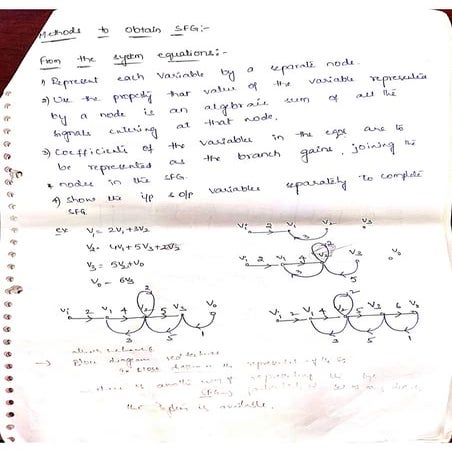 Methods to obtain SFG:-
From the system equations:-
1) Represent each variable by a separate node.
2) Use the property that value of the variable represented
by a node is an algebraic sum of all the
signals entering at that node.
3) Coefficients of the variables in the eqns are to
be represented as the branch gains, joining the
nodes in the SFG.
4) Show the i/p & o/p variables separately to complete
SFG.
ex V₁ = 2Vi + 3V₂
V₂ = 4V₁ + 5V₃ + 2V₂
V₃ = 5V₂ + V₀
V₀ = 6V₃
Vi 2 V₁ V₂ V₃
3
Vi 2 V₁ 4 V₂ V₃ V₀
2
3 5
Vi 2 V₁ 4 V₂ 5 V₃ V₀
2
3 5 1
Vi 2 V₁ 4 V₂ 5 V₃ 6 V₀
2
3 5 1
flow diagram
the is available.